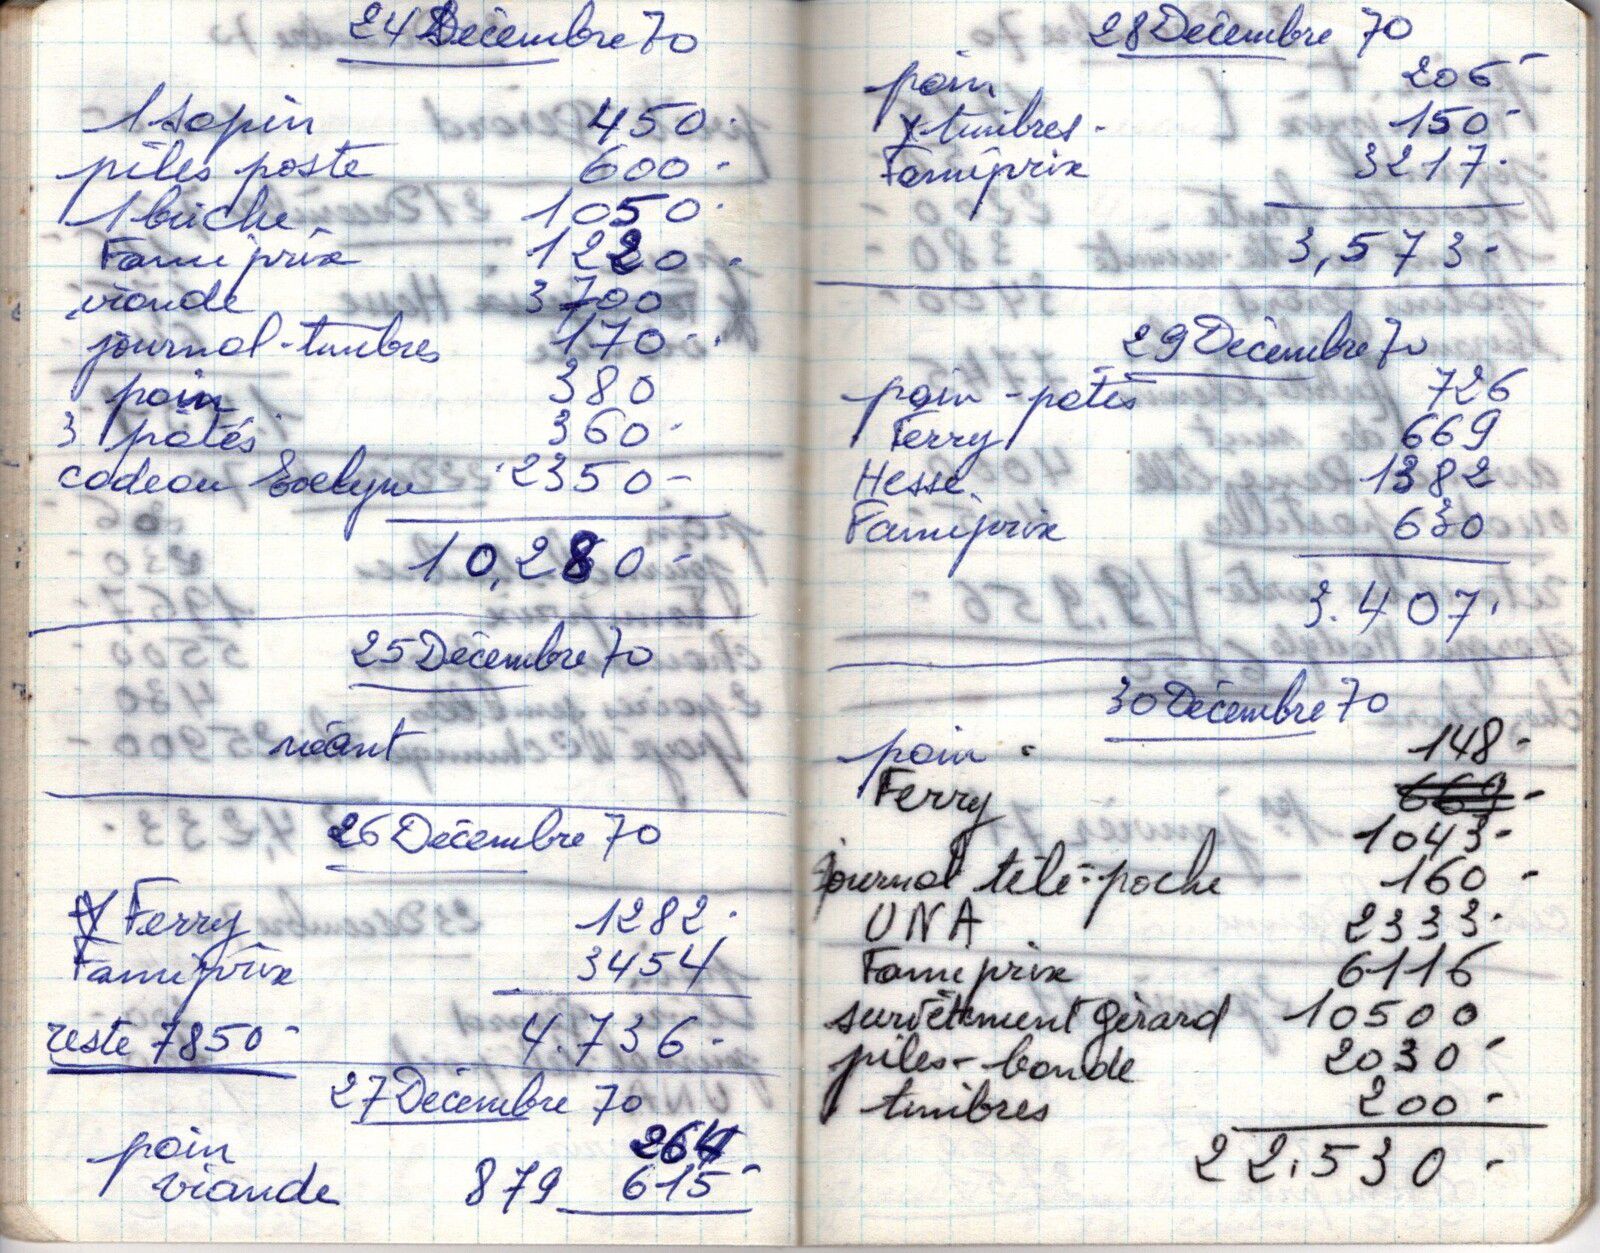 24 Décembre 70
1 sapin 450.
piles poste 600.
1 bûche 1050.
Famiprix 1220.
viande 3700
journal-timbres 170.
pain 380
3 pâtés 360.
cadeau Evelyne 2350-
10,280-
25 Décembre 70
néant
26 Décembre 70
Ferry 1282.
Famiprix 3454
reste 7850- 4.736.
27 Décembre 70
pain 264
viande 879 615-
28 Décembre 70
pain 206-
timbres. 150-
Famiprix 3217.
3,573-
29 Décembre 70
pain-pâtés 726
Ferry 669
Hesse. 1382
Famiprix 630
3.407.
30 Décembre 70
pain. 148-
Ferry 669-
1043-
journal télé-poche 160-
UNA 2333.
Famiprix 6116
survêtement Gérard 10500
piles-bande 2030-
timbres 200-
22.530-